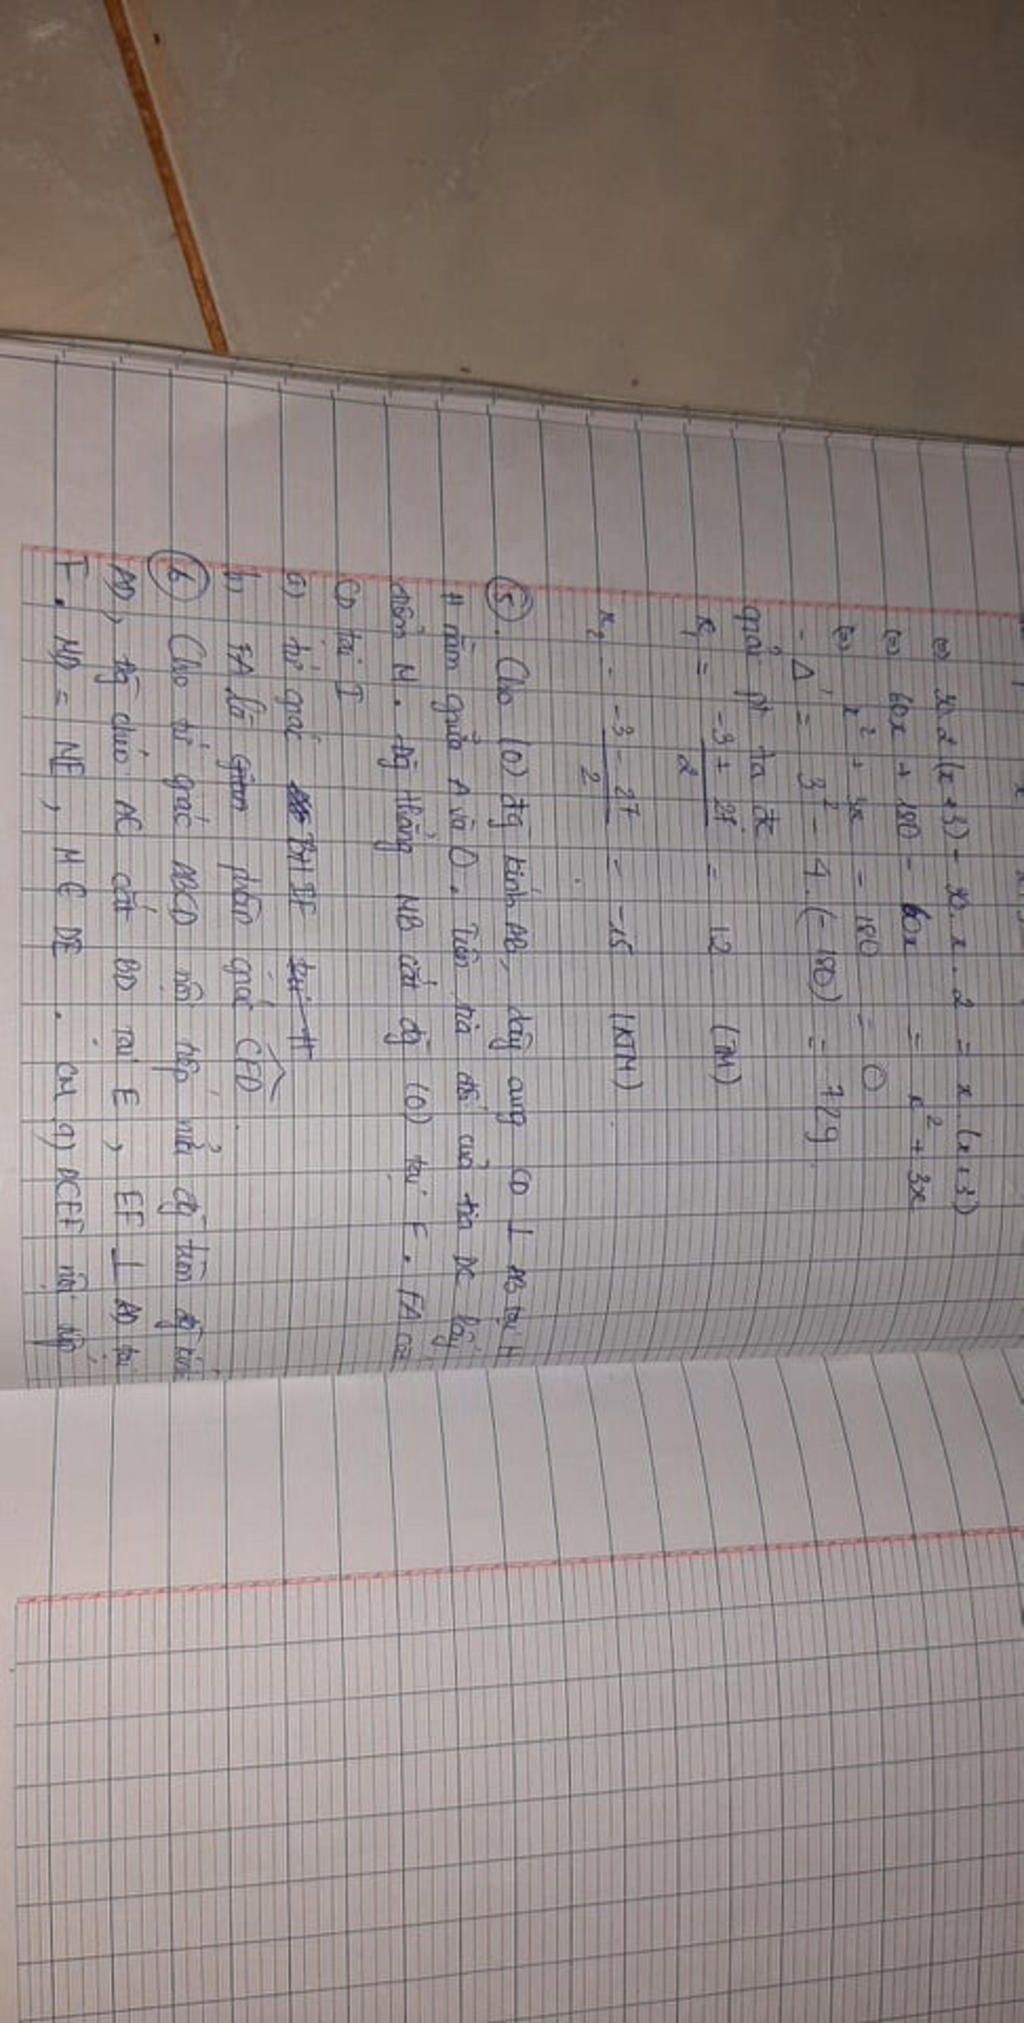 (=) 30.2(x+3) - 30.x.2 = x(x+3)
(=) 60x + 180 - 60x = x² + 3x
(=) x² + 3x - 180 = 0
- Δ = 3² - 4.(-180) = 729
giải pt ta đc
x₁ = -3 + 27 / 2 = 12 (TM)
x₂ = -3 - 27 / 2 = -15 (KTM)
5. Cho (O) đg kính AB, dây cung CD ⊥ AB tại H
H nằm giữa A và O. Trên tia đối của tia DC lấy
điểm M. đg thẳng MB cắt đg (O) tại F. FA cắt
CD tại I
a) tứ giác BHIF
b) FA là phân giác CFD.
6 Cho tứ giác ABCD nội tiếp nửa đg tròn đg kính
AD, đg chéo AC cắt BD tại E, EF ⊥ AD tại
F. MD = ME, M ∈ DE. CM a) DCEF nội tiếp